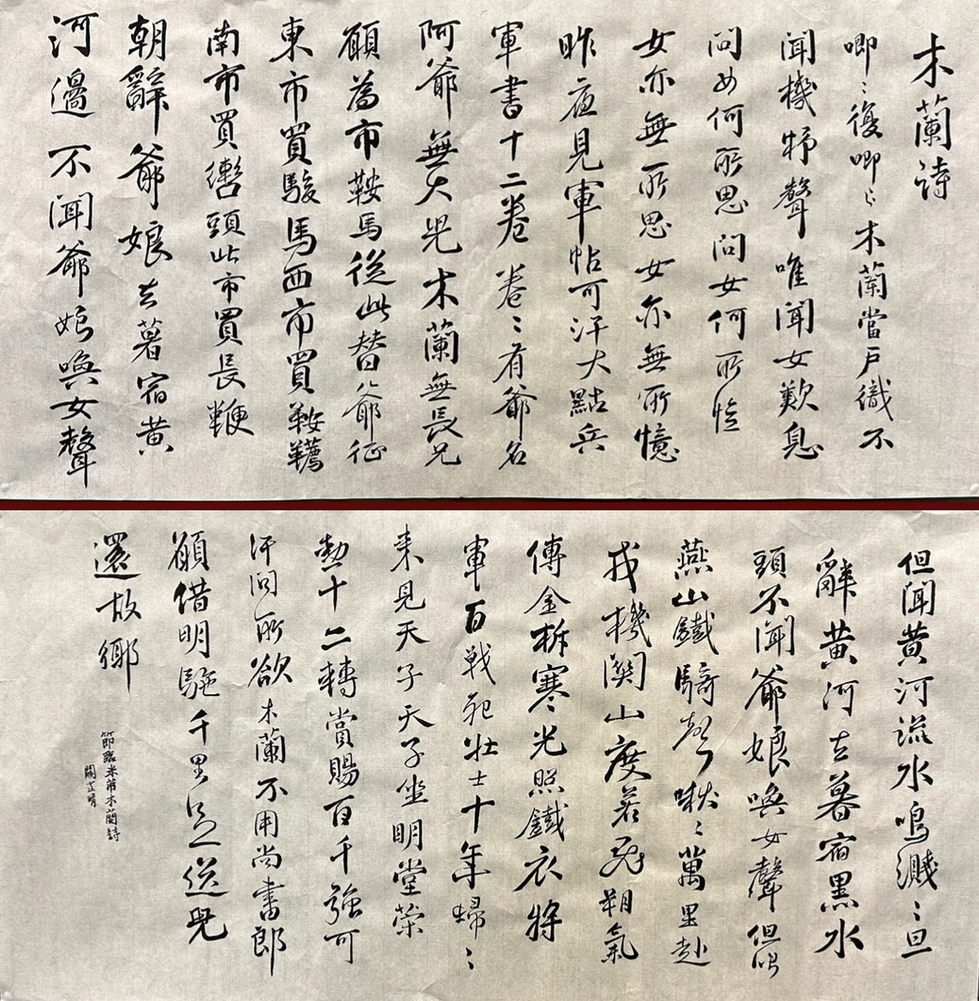 木蘭詩
唧〻復唧〻木蘭當戶織不
聞機杼聲唯聞女歎息
問女何所思問女何所憶
女亦無所思女亦無所憶
昨夜見軍帖可汗大點兵
軍書十二卷卷〻有爺名
阿爺無大兒木蘭無長兄
願為市鞍馬從此替爺征
東市買駿馬西市買鞍韉
南市買轡頭北市買長鞭
朝辭爺娘去暮宿黃
河邊不聞爺娘喚女聲
但聞黃河流水鳴濺〻旦
辭黃河去暮宿黑水
頭不聞爺娘喚女聲但聞
燕山鐵騎聲啾〻萬里赴
戎機關山度若飛朔氣
傳金柝寒光照鐵衣將
軍百戰死壯士十年歸〻
来見天子天子坐明堂策
勳十二轉賞賜百千強可
汗問所欲木蘭不用尚書郎
願借明駝千里足送兒
還故鄉
節臨米芾木蘭詩